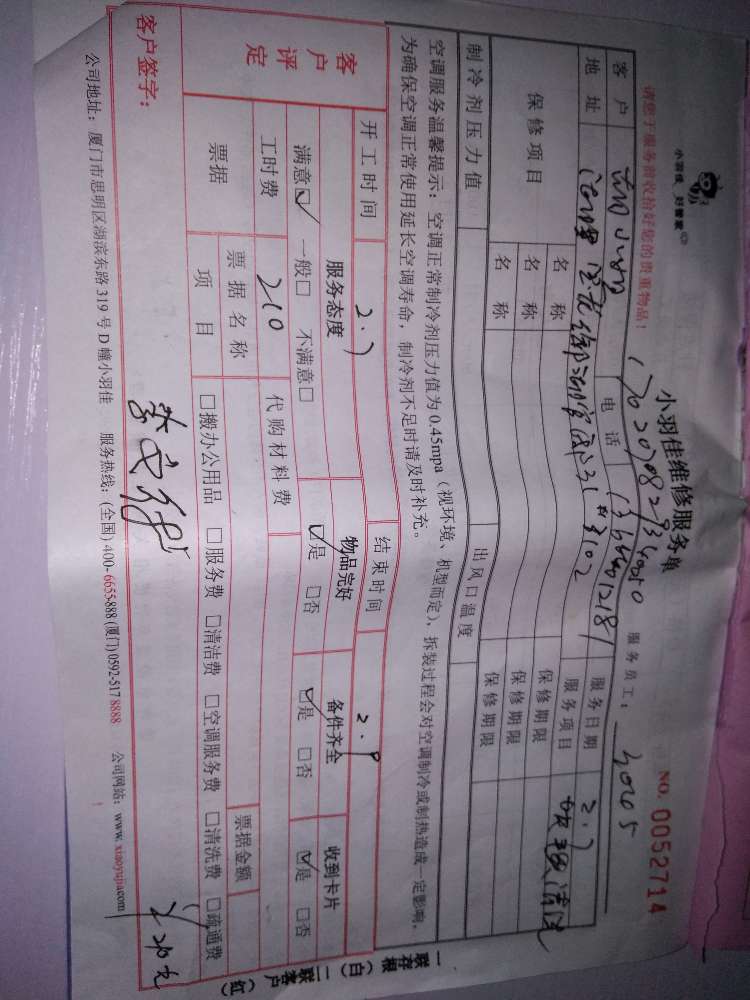 小羽佳 好管家
小羽佳维修服务单
NO. 0052714
请您于服务前收拾好您的贵重物品！
服务员工：
客户
电话
服务日期 2.7
地址
服务项目
保修项目
名称
保修期限
名称
保修期限
名称
保修期限
制冷剂压力值
出风口温度
空调服务温馨提示：空调正常制冷剂压力值为0.45mpa（视环境、机型而定），拆装过程会对空调制冷或制热造成一定影响，
为确保空调正常使用延长空调寿命，制冷剂不足时请及时补充。
开工时间 2.7
结束时间 2.9
客户评定
服务态度
物品完好
备件齐全
收到卡片
满意☑ 一般□ 不满意□
☑是 □否
☑是 □否
☑是 □否
工时费 210
代购材料费
票据
票据名称
票据金额
项目
□搬办公用品 □服务费 □清洁费 □空调服务费 □清洗费 □疏通费
客户签字：
公司地址：厦门市思明区湖滨东路319号D幢小羽佳 服务热线：(全国) 400-6655-888 (厦门) 0592-517 8888 公司网站：www.xiaoyujia.com
一联存根（白） 二联客户（红）